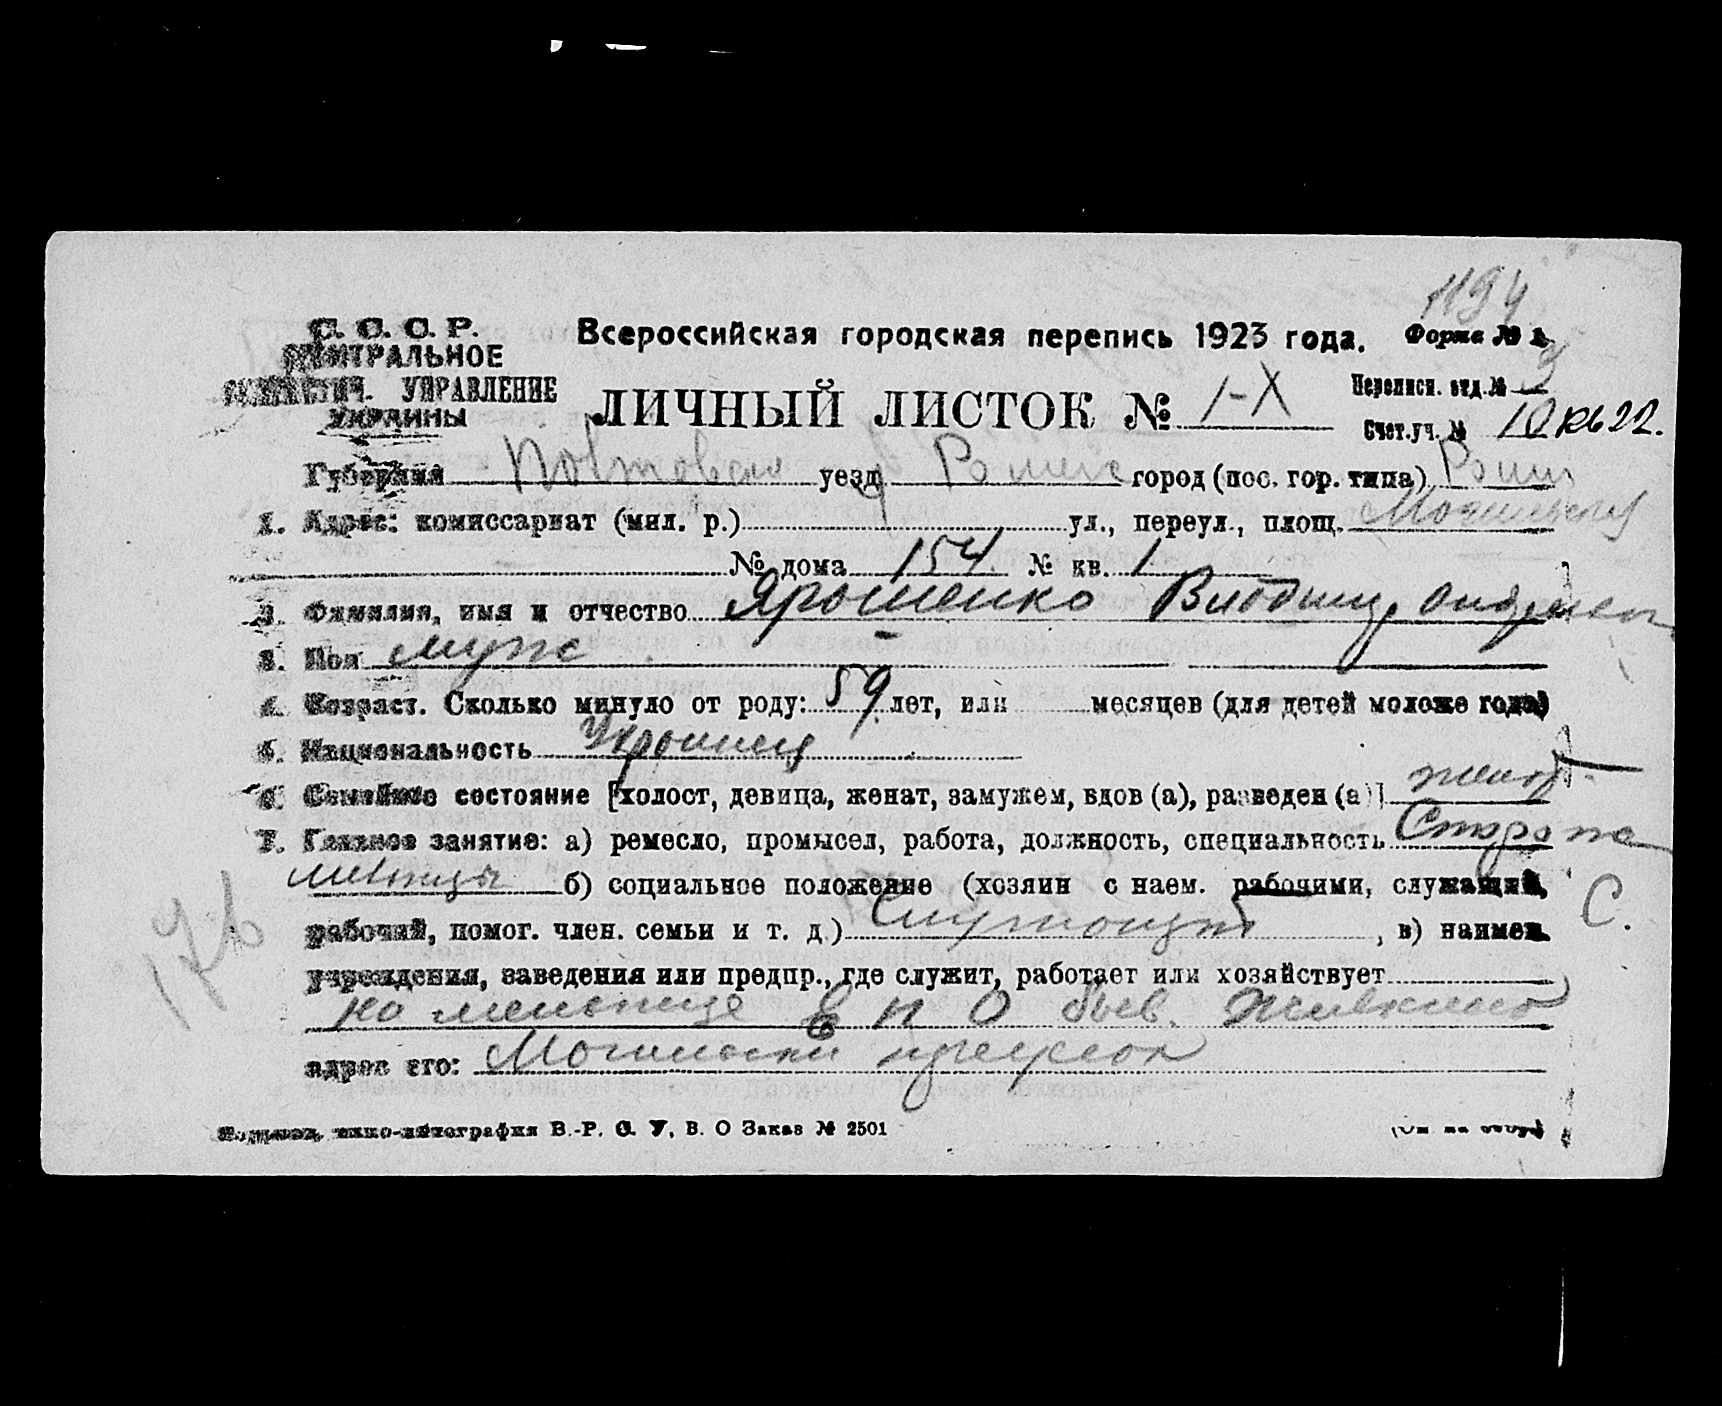 1194
С. С. С. Р.
ЦЕНТРАЛЬНОЕ
СТАТИСТИЧ. УПРАВЛЕНИЕ
УКРАИНЫ
Всероссийская городская перепись 1923 года. Форма № 1.
ЛИЧНЫЙ ЛИСТОК № 1-X
Переписн. отд. № 3
Счет. уч. № 10 кв 22.
Губерния Полтавская уезд Роменс город (пос. гор. типа)
1. Адрес: комиссариат (мил. р.) ул., переул., площ. Могильская
№ дома 154. № кв. 1
2. Фамилия, имя и отчество Ярошенко Владимир
3. Пол муж
4. Возраст. Сколько минуло от роду: 59 лет, или месяцев (для детей моложе года)
5. Национальность Украинец
6. Семейное состояние [холост, девица, женат, замужем, вдов (а), разведен (а)] женат
7. Главное занятие: а) ремесло, промысел, работа, должность, специальность Сторож
мельницы б) социальное положение (хозяин с наем. рабочими, служащий, С.
рабочий, помог. член. семьи и т. д.) Служащий, в) наимен.
учреждения, заведения или предпр., где служит, работает или хозяйствует
на мельнице Е П О бывш.
адрес его:
176
типо-литография В.-Р. С. У. В. О Заказ № 2501
(См на обор)